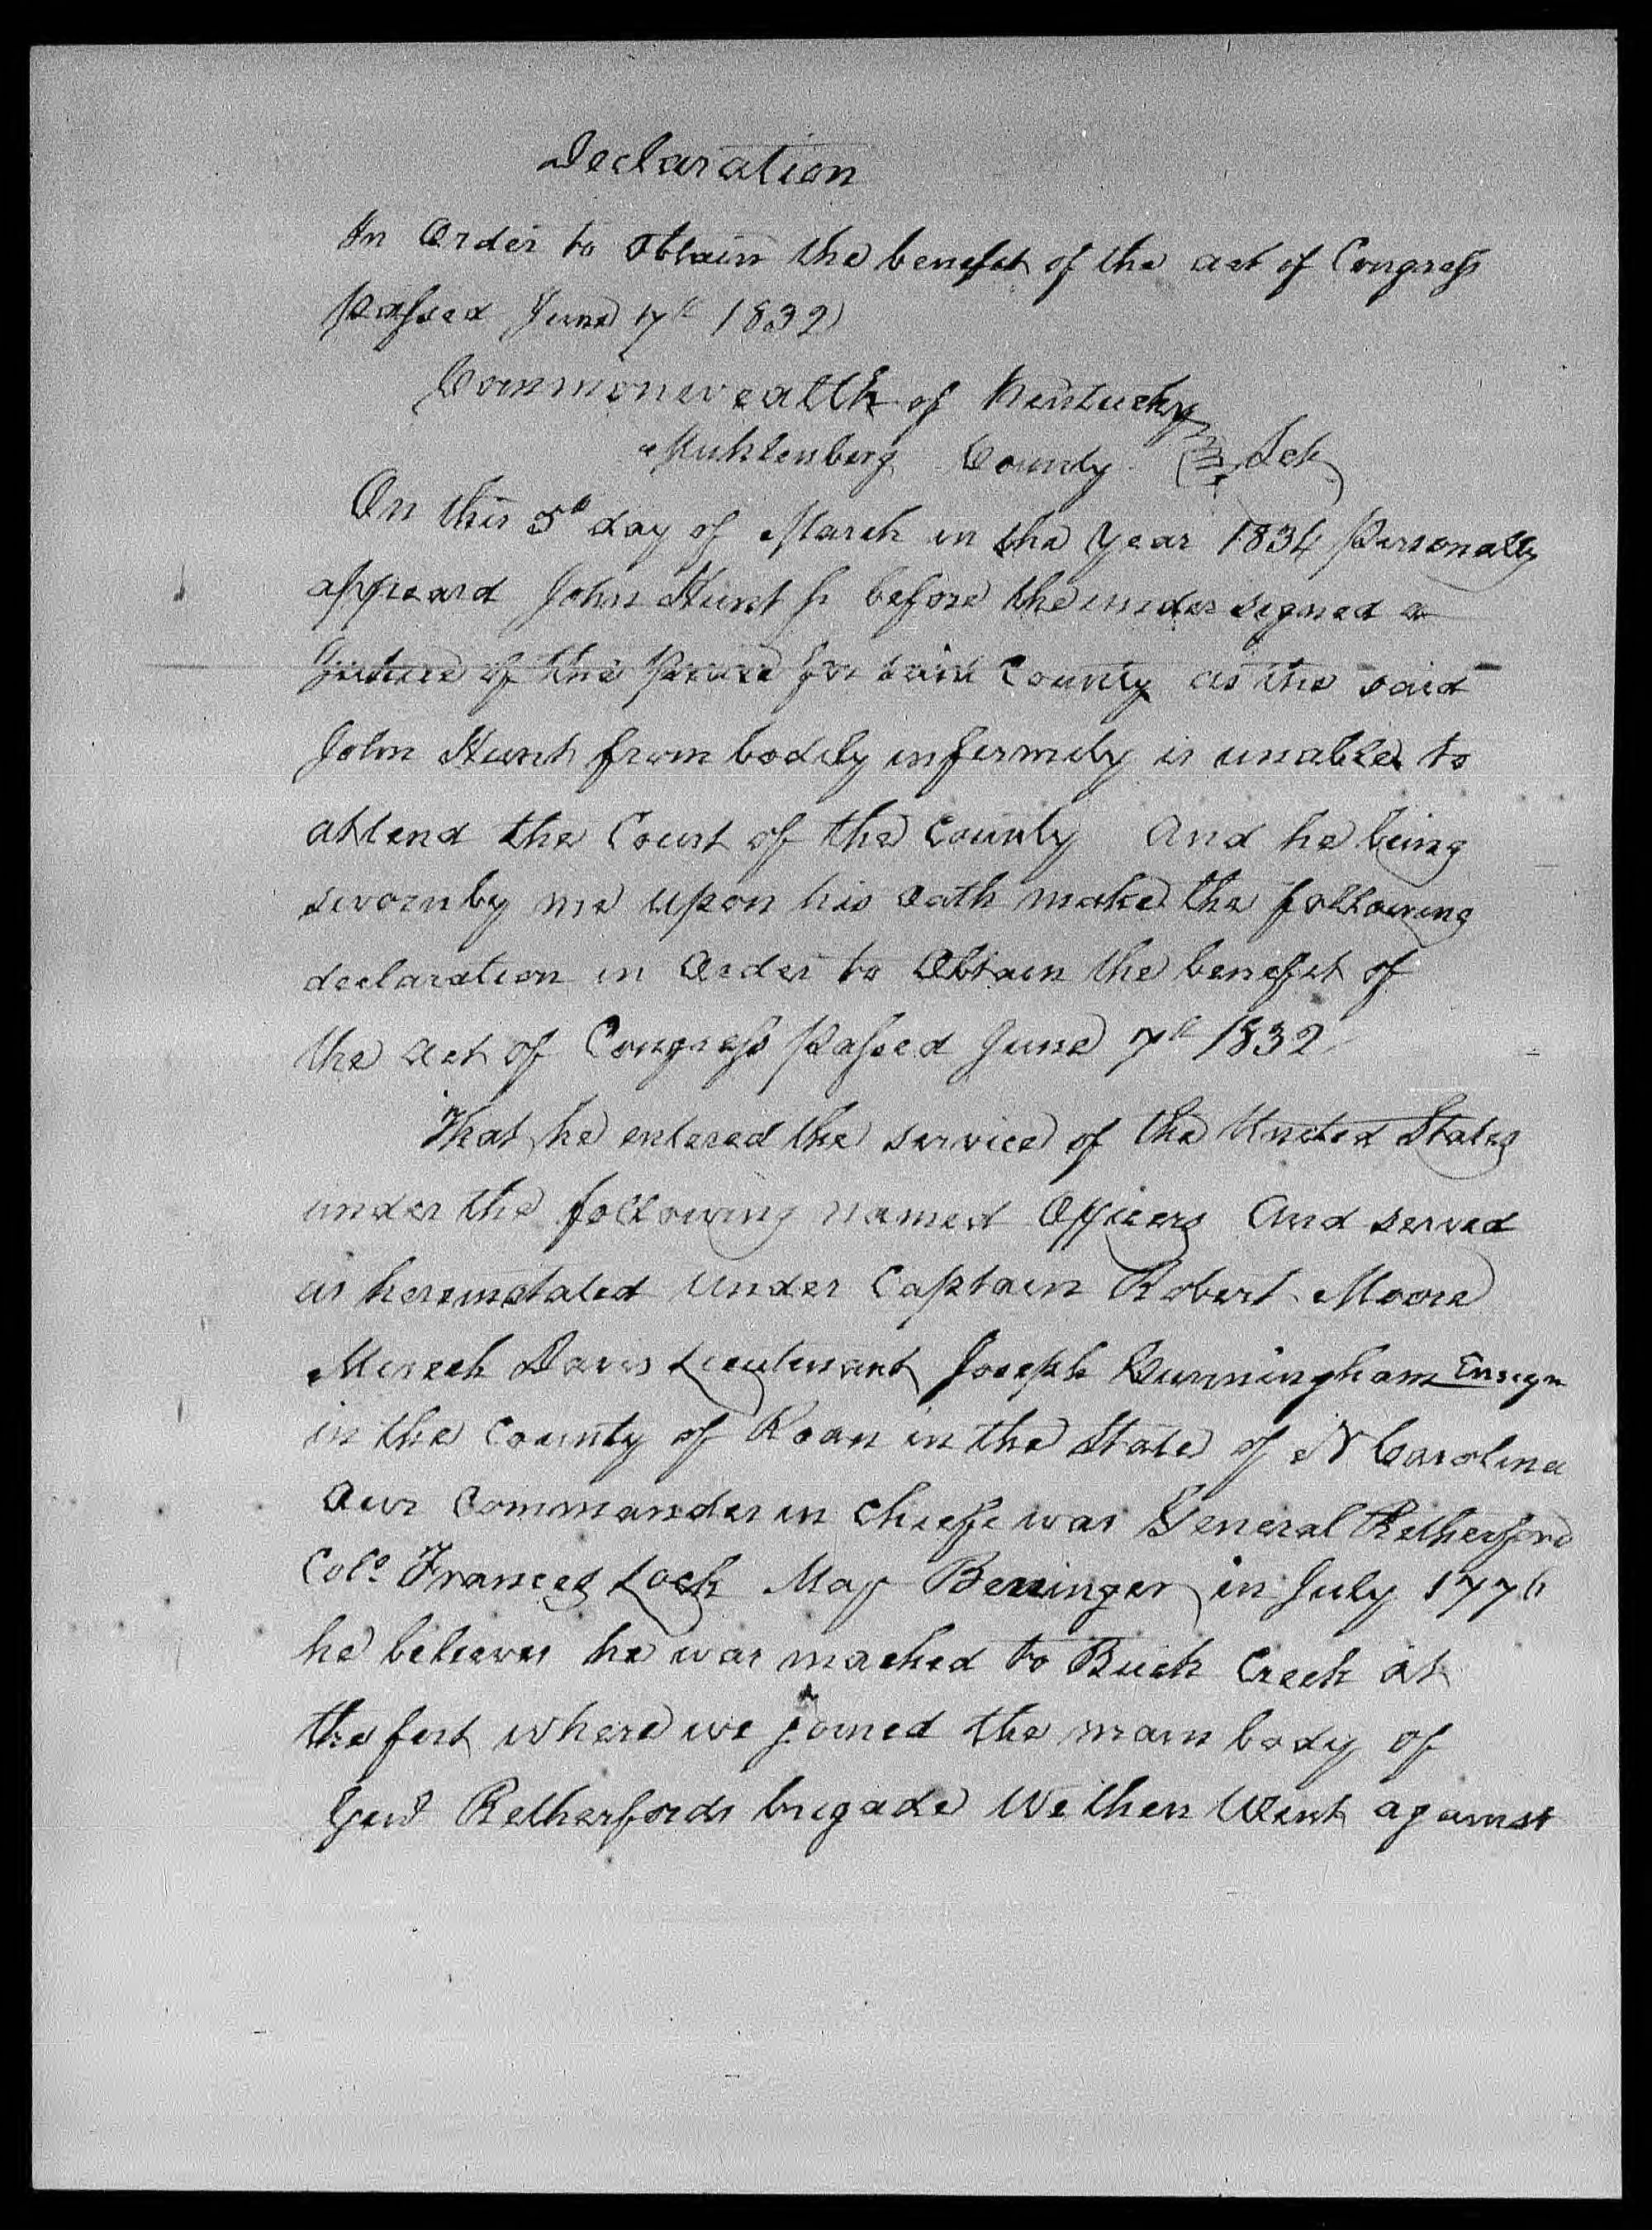 Declaration
In Order to Obtain the benefit of the act of Congress
passed June 7th 1832
Commonwealth of Kentucky
Muhlenberg County Sct
On this 5th day of March in the Year 1834 Personally
appeard John Hunt Sr before the undersigned a
Justice of the Peace for said County as the said
John Hunt from bodily infermity is unable to
attend the Court of the County And he being
sworn by me upon his Oath make the following
declaration in Order to Obtain the benefit of
the act of Congress Passed June 7th 1832
That he entered the service of the United States
under the following named Officers And served
as hereinstated under Captain Robert Moore
Davis Lieutenant Joseph Cunningham Ensign
in the County of Roan in the State of N Carolina
Our Commander in Chiefe was General Retherford
Colo. Frances Lock Maj Beringer in July 1776
he believes he was mached to Buck Creek at
the fort where we joined the main body of
Genl Retherfords brigade We then Went against